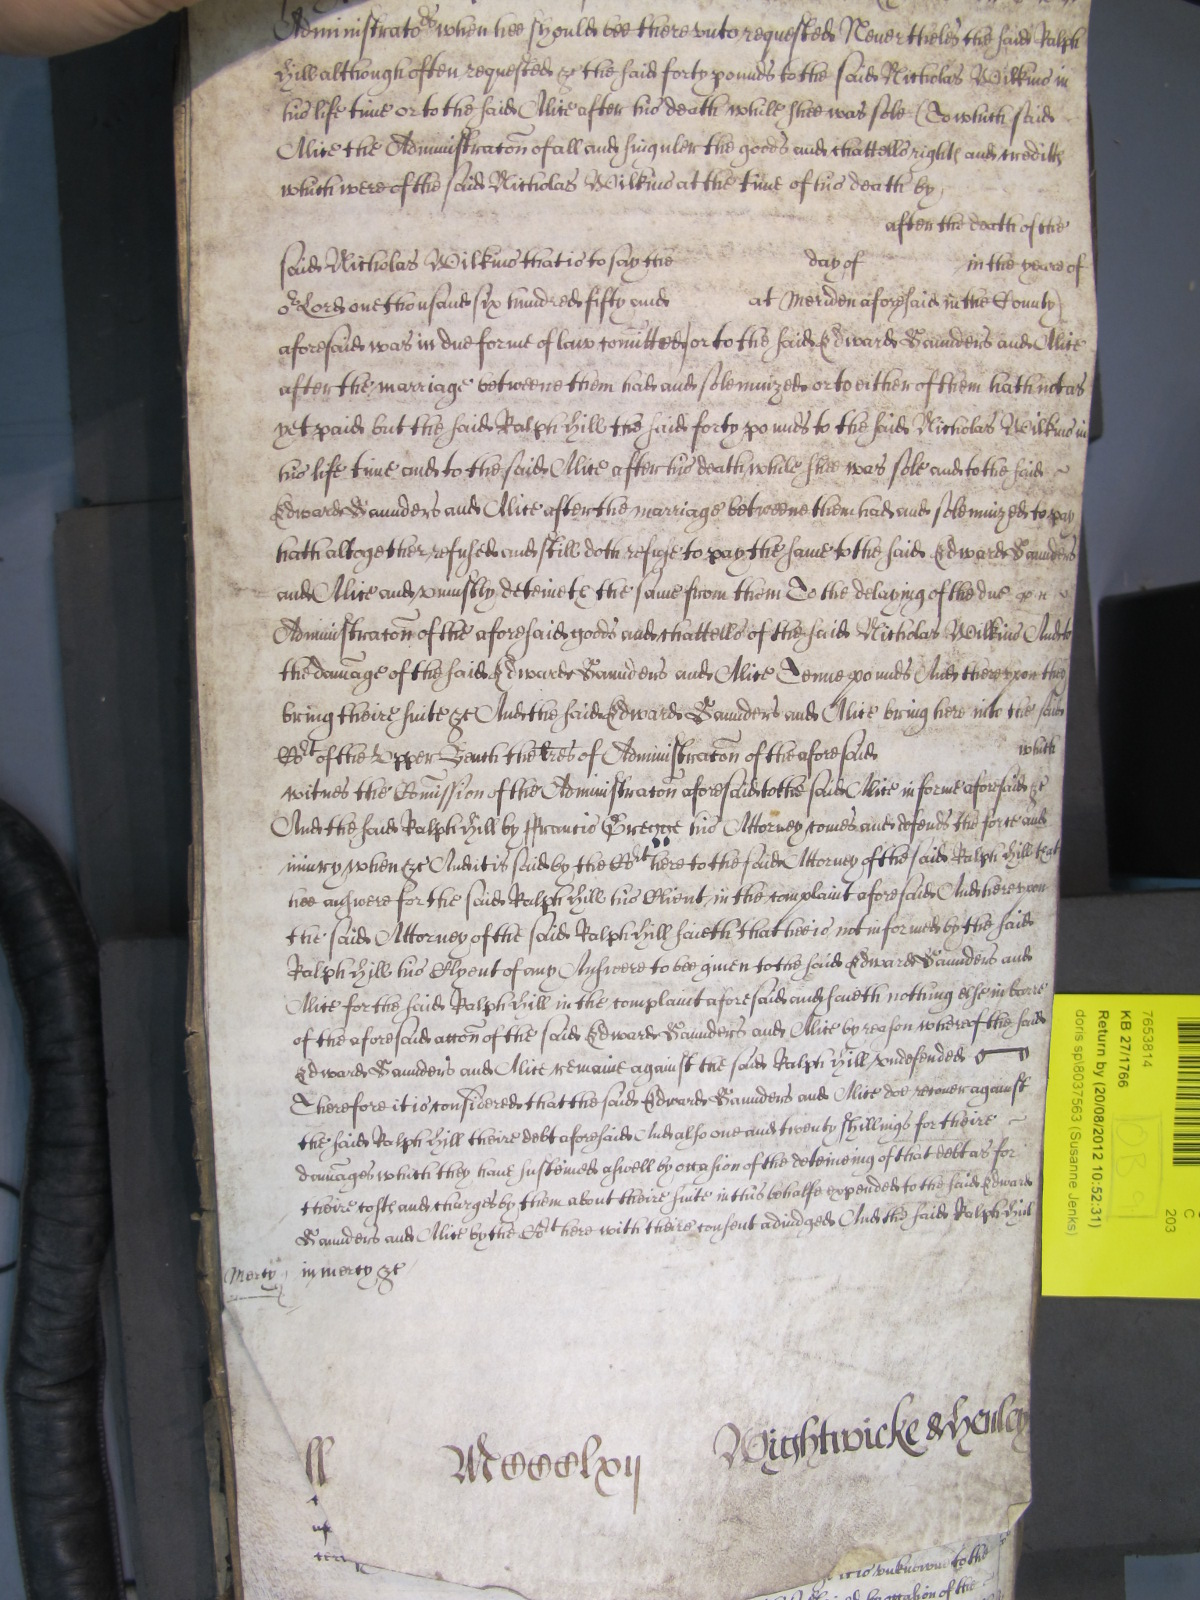 Administrators when hee should bee there vnto requested Neuertheles the said Ralph
Hill although often requested &c the said forty pounds to the said Nicholas Wilkins in
his life time or to the said Alice after his death while shee was sole (To which said
Alice the Administracon of all and singuler the goods and chattells rights and credits
which were of the said Nicholas Wilkins at the time of his death by
after the death of the
said Nicholas Wilkins that is to say the day of in the yeare of
or Lord one thousand six hundred fifty and at Meriden aforesaid in the County
aforesaid was in due forme of law comitted) or to the said Edward Saunders and Alice
after the marriage betweene them had and solemnized or to either of them hath not as
yet paid but the said Ralph Hill the said forty pounds to the said Nicholas Wilkins in
his life time and to the said Alice after his death while shee was sole and to the said
Edward Saunders and Alice after the marriage betweene them had and solemnized to pay
hath altogether refused and still doth refuse to pay the same to the said Edward Saunders
and Alice and vniustly deteineth the same from them To the delaying of the due
Administracon of the aforesaid goods and chattells of the said Nicholas Wilkins And to
the damage of the said Edward Saunders and Alice Tenne pounds And therevpon they
bring theire suite &c And the said Edward Saunders and Alice bring here into the said
Cort of the Vpper Bench the lres of Administracon of the aforesaid which
witnes the Comission of the Administracon aforesaid to the said Alice in forme aforesaid &c
And the said Ralph Hill by ffrancis Gregge his Attorney comes and defends the force and
iniury when &c And it is said by the Cort here to the said Attorney of the said Ralph Hill that
hee answere for the said Ralph Hill his Client in the complaint aforesaid And herevpon
the said Attorney of the said Ralph Hill saieth that hee is not informed by the said
Ralph Hill his Clyent of any Answere to bee giuen to the said Edward Saunders and
Alice for the said Ralph Hill in the complaint aforesaid and saieth nothing else in barre
of the aforesaid accon of the said Edward Saunders and Alice by reason whereof the said
Edward Saunders and Alice remaine against the said Ralph Hill vndefended
Therefore it is considered that the said Edward Saunders and Alice doe recouer against
the said Ralph Hill theire debt aforesaid And also one and twenty shillings for theire
damages which they haue susteined aswell by occasion of the deteineing of that debt as for
theire costs and charges by them about theire suite in this behalfe expended to the said Edward
Saunders and Alice by the Cort here with theire consent adiudged And the said Ralph Hill
Mercy in mercy &c
MCCClxij Wightwicke & Henley
is vnknowne to the
occasion of the
7653814
KB 27/1766
Return by (20/08/2012 10:52:31)
doris spl8037563 (Susanne Jenks)
C
203